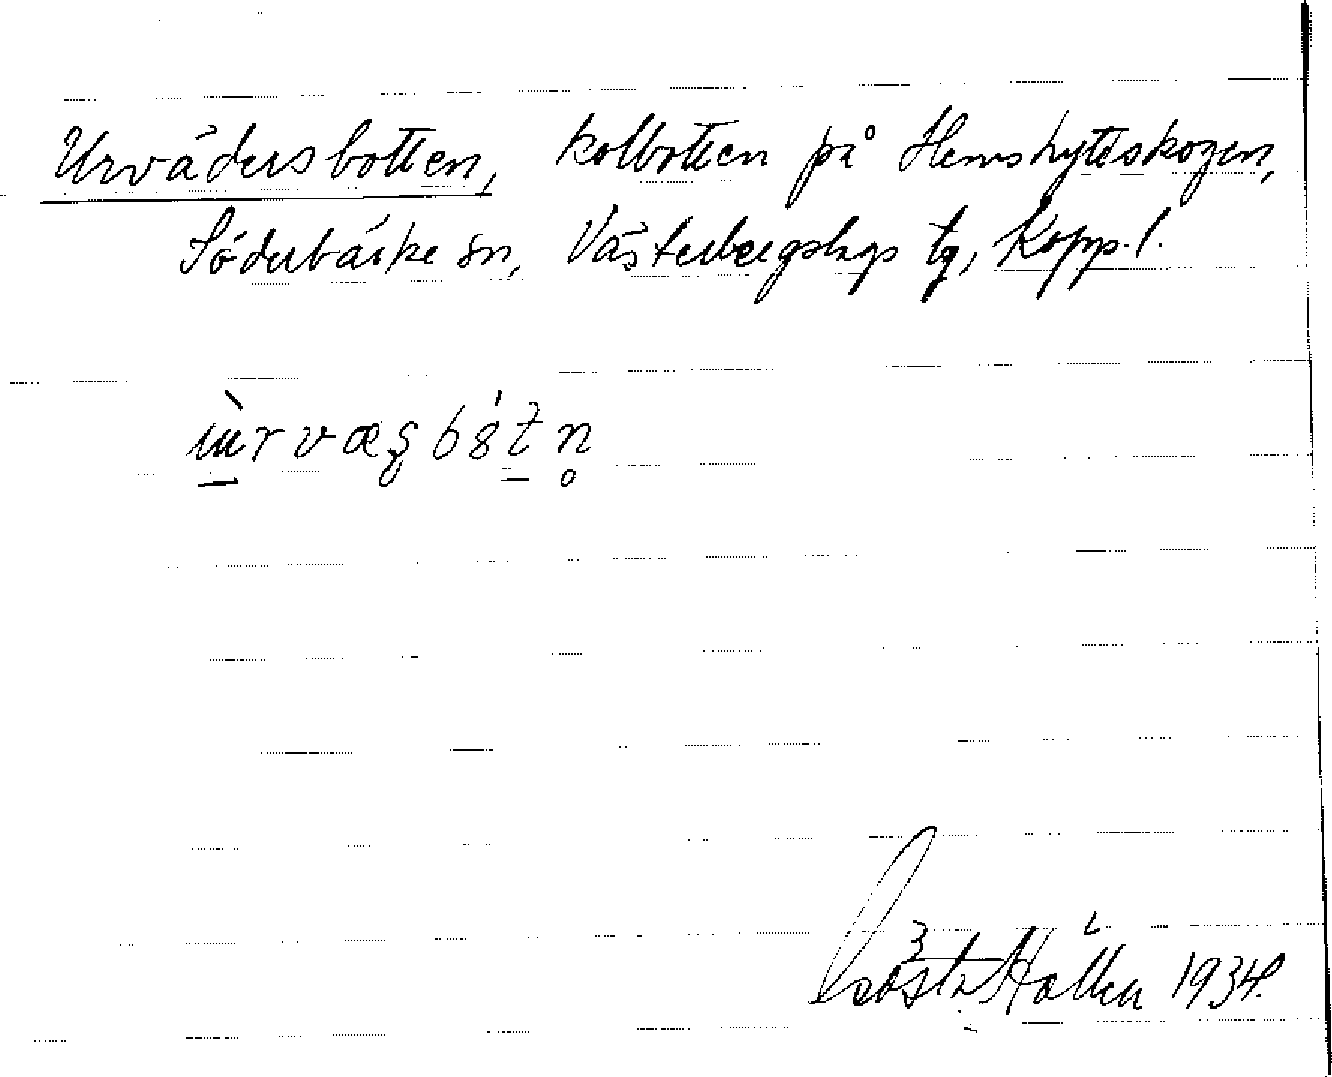 Urvädersbotten, kolbotten på Hemshytteskogen,
Söderbärke sn, Västerbergslags tg, Kopp. l.
Gösta Hållen 1934.